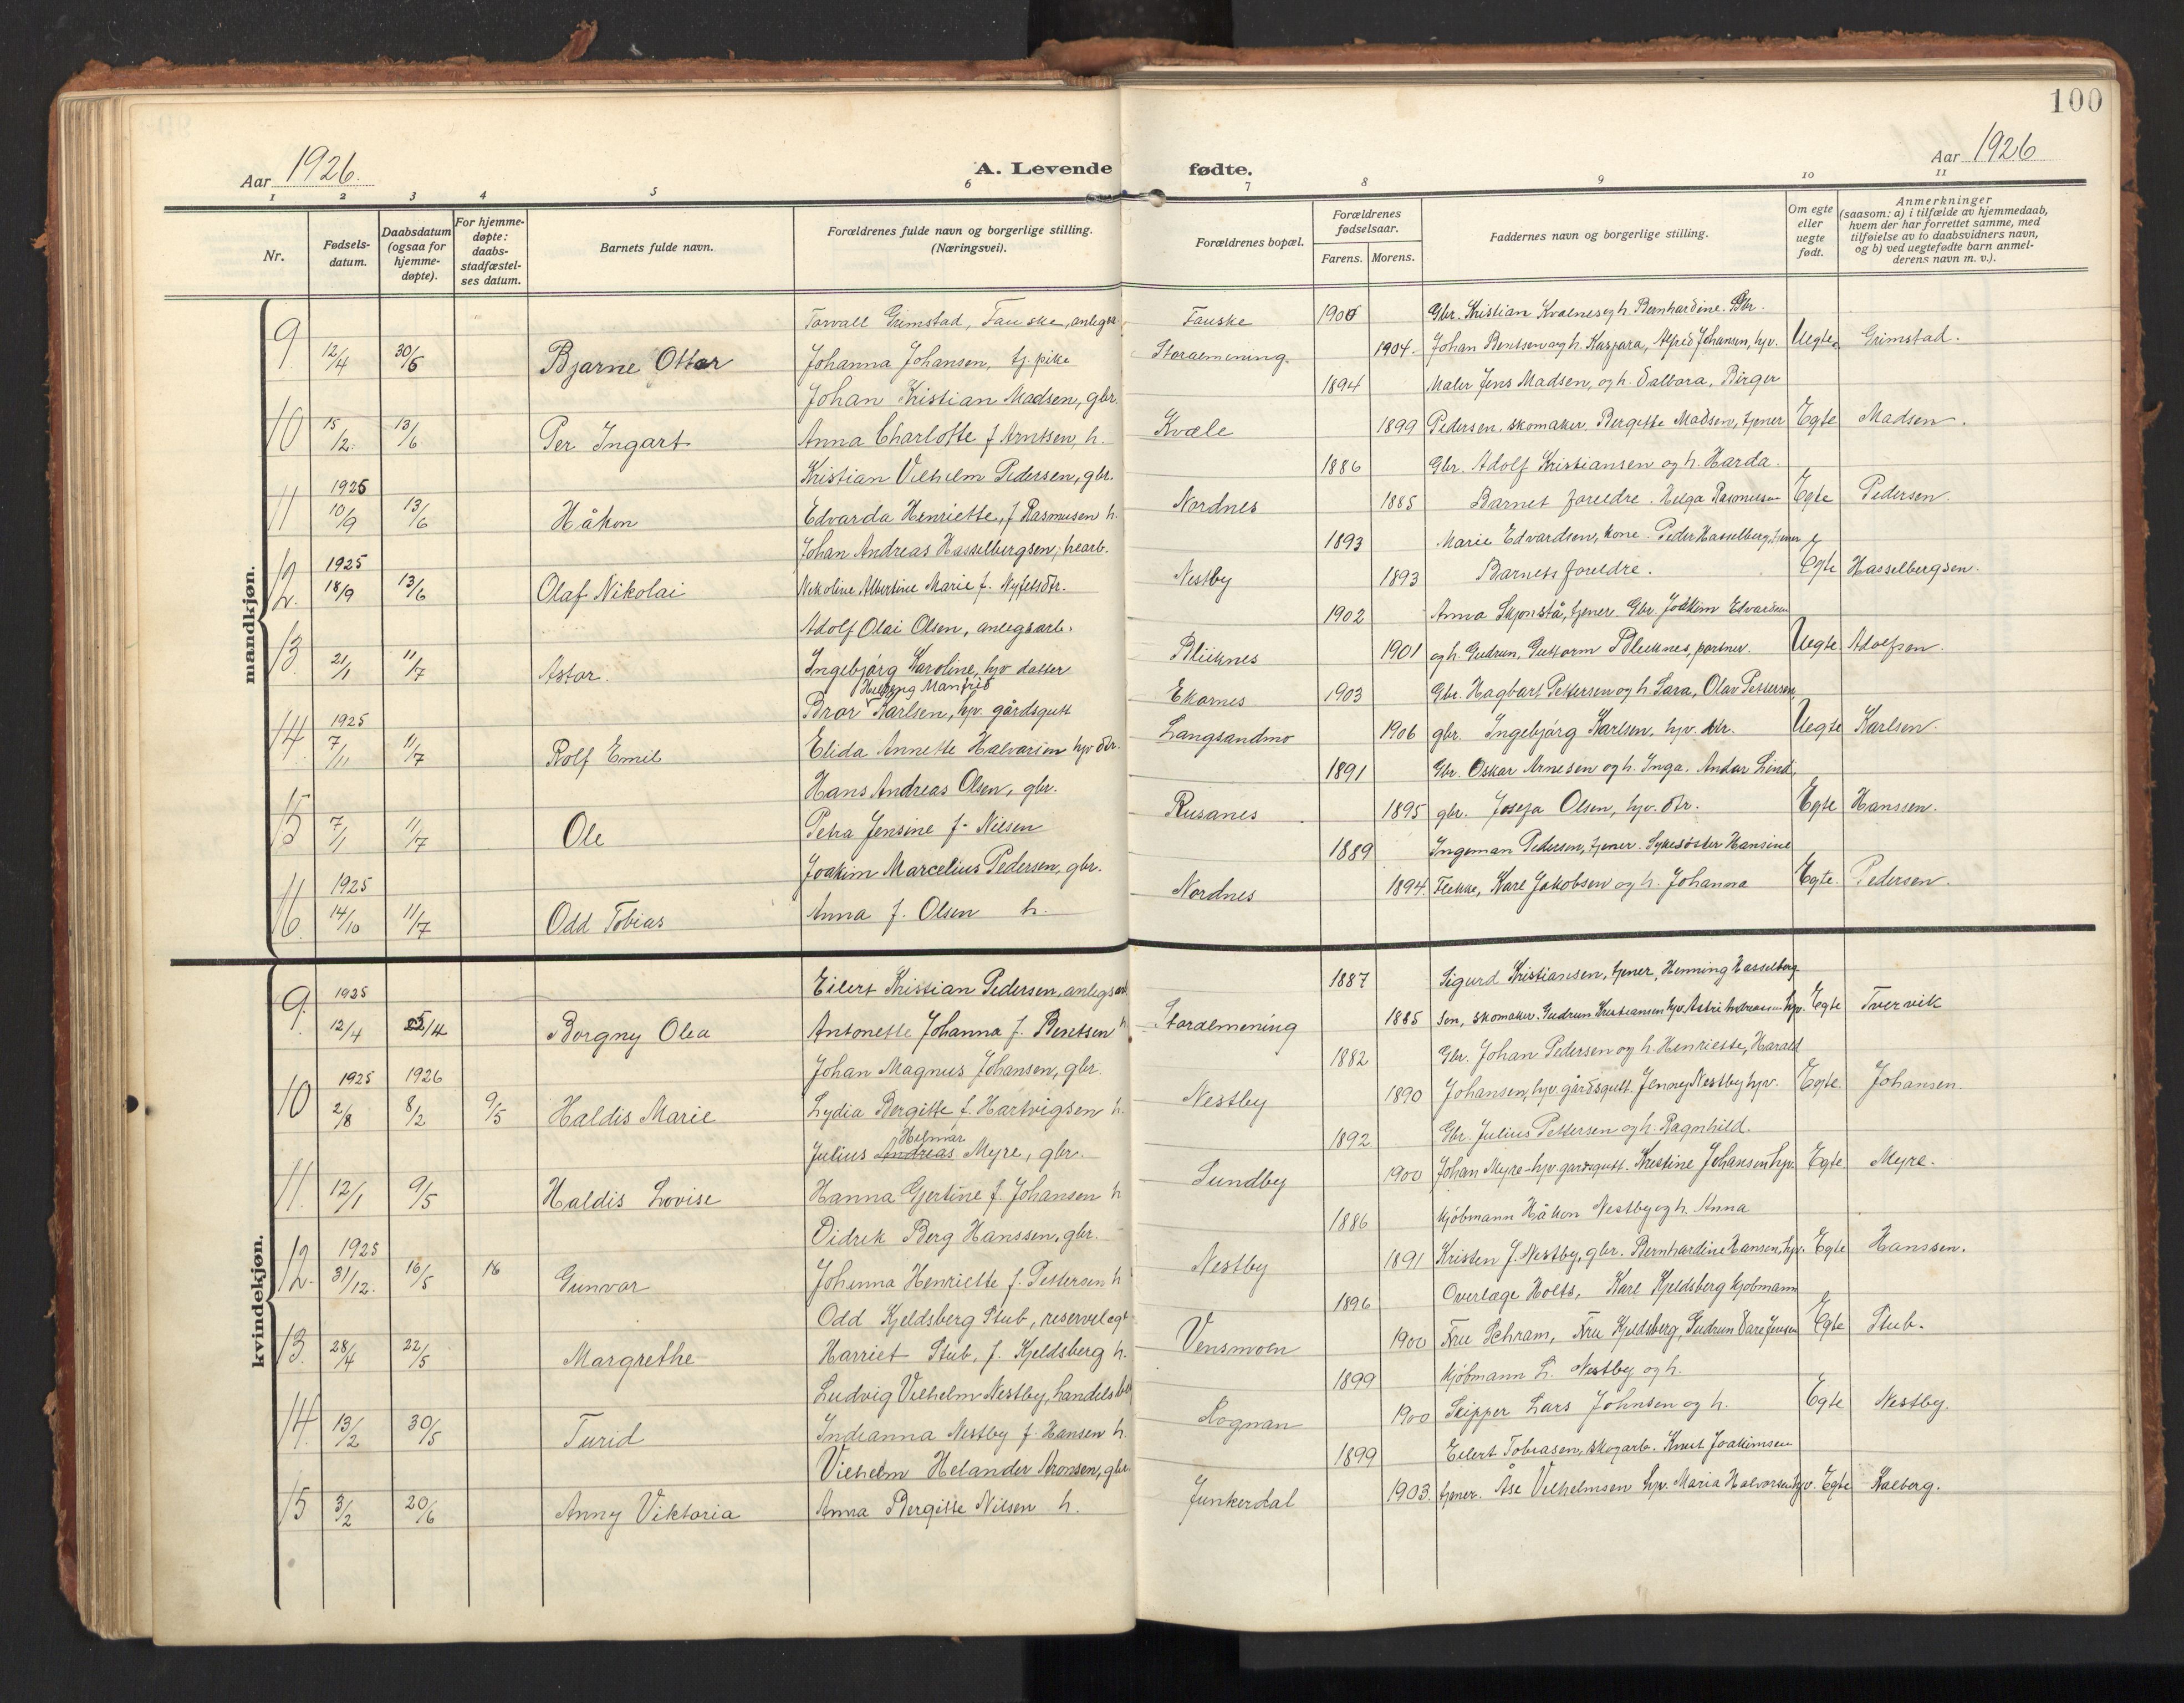 100
Aar 1926.
A. Levende fødte.
Aar 1926
1 2 3 4 5 6 7 8 9 10 11
Nr.
Fødsels-datum.
Daabsdatum (ogsaa for hjemme-døpte).
For hjemme-døpte: daabs-stadfæstel-ses datum.
Barnets fulde navn.
Forældrenes fulde navn og borgerlige stilling. (Næringsvei).
Forældrenes bopæl.
Forældrenes fødselsaar.
Farens. Morens.
Faddernes navn og borgerlige stilling.
Om egte eller uegte født.
Anmerkninger (saasom: a) i tilfælde av hjemmedaab, hvem der har forrettet samme, med tilføielse av to daabsvidners navn, og b) ved uegtefødte barn anmel-derens navn m. v.).
mandkjøn.
Torvall Grimstad, Fauske, anlegsa Fauske 1906 Gbr. Kristian Kvalnes og h. Bernhardine. Gbr.
9. 12/4 30/5 Bjarne Ottar Johanna Johansen, tj. pike Storalmening. 1904. Johan Bentsen og h. Kaspara, Alfrid Johansen, hjv. Uegte Grimstad.
Johan Kristian Madsen, gbr. 1894 Maler Jens Madsen, og h. Valbora, Birger
10 15/2. 13/6 Per Ingart Anna Charlotte f Arntsen, h. Kvæle 1899 Pedersen, skomaker. Bergitte Madsen, tjener Egte Madsen.
1925 Kristian Vilhelm Pedersen, gbr. 1886 Gbr. Adolf Kristiansen og h. Harda.
11 10/9 13/6 Håkon Edvarda Henriette, f Rasmusen h. Nordnes 1885 Barnet foreldre. Helga Rasmussen Egte Pedersen.
1925 Johan Andreas Hasselbergsen, trearb. 1893 Marie Edvardsen, kone. Peder Hasselberg, tjener
12. 18/9 13/6 Olaf Nikolai Nikoline Albertine Marie f. Nyfelsdtr. Nestby 1893 Barnets foreldre. Egte Hasselbergsen.
Adolf Olai Olsen, anlegsarb. 1902 Anna Skjonstå, tjener. Gbr. Joakim Edvardsen
13 21/1 11/7 Astor. Ingebjørg Karoline, hjv datter Bliknes 1901 og h. Gudrun, Guttorm Bleiknes, portner. Uegte Adolfsen.
Hilberg Manfrid
1925 Bror Karlsen, hjv. gårdsgutt Ekornes 1903 Gbr. Hagbart Pettersen og h. Sara, Olav Pettersen,
14 7/11 11/7 Rolf Emil Elida Annette Halvorsen hjv dtr. Langsandmo 1906 gbr. Ingebjørg Karlsen, hjv. dtr. Uegte Karlsen.
Hans Andreas Olsen, gbr. 1891 Gbr. Oskar Arnesen og h. Inga. Andor Lind,
15 7/1 11/7 Ole Petra Jensine f. Nilsen Rusanes 1895 gbr. Josefa Olsen, hjv. dtr. Egte Hanssen.
1925 Joakim Marcelius Pedersen, gbr. 1889 Ingeman Pedersen, tjener. Sykesøster Hansine
16. 14/10 11/7 Odd Tobias Anna f. Olsen h. Nordnes 1894. Flekke, Karl Jakobsen og h. Johanna Egte. Pedersen.
kvindekjøn.
1925 Eilert Kristian Pedersen, anlegsarb 1887 Sigurd Kristiansen, tjener, Henning Hasselberg
9. 12/4 25/4 Borgny Olea Antonette Johanna f. Bentsen h Storalmening 1885 sen, skomaker. Gudrun Kristiansen hjv. Astri Andreassen hjv. Egte Tvervik
1925 1926 Johan Magnus Johansen, gbr. 1882 Gbr. Johan Pedersen og h. Henriette, Harald
10 2/8 8/2 9/5 Haldis Marie Lydia Bergitte f. Hartvigsen h. Nestby 1890 Johansen, hjv. gårdsgutt. Jenny Nestby hjv. Egte. Johansen.
Helmar
Julius Andreas Myre, gbr. 1892 Gbr. Julius Pettersen og h. Ragnhild.
11. 12/1 9/5 Haldis Lovise Hanna Gjertine f. Johansen h Sundby 1900 Johan Myre hjv. gardsgutt. Kristine Johansen hjv. Egte Myre.
1925 Didrik Berg Hanssen, gbr. 1886 Kjøbmann Håkon Nestby og h. Anna
12. 31/12. 16/5 16 Gunvor Johanna Henriette f. Pettersen h Nestby 1891 Kristen J. Nestby, gbr. Bernhardine Hansen, hjv. Egte Hanssen.
Odd Kjeldsberg Stub, reservelege 1896 Overlæge Holts, Karl Kjeldsberg kjøbmann
13 28/4 22/5 Margrethe Harriet Stub, f. Kjeldsberg h. Vensmoen 1900 Fru Schram, Fru Kjeldsberg, Gudrun Vare Jensen Egte Stub.
Ludvig Vilhelm Nestby, handelsbet 1899 Kjøbmann L. Nestby og h.
14 13/2 30/5 Turid Indianna Nestby f. Hansen h. Rognan 1900 Skipper Lars Johnsen og h. Egte Nestby.
Vilhelm Helander Aronsen, gbr. 1899 Eilert Tobiasen, skogarb. Knut Joakimsen
15 3/2 20/6 Anny Viktoria Anna Bergitte Nilsen h. Junkerdal 1903. tjener. Åse Vilhelmsen hjv. Maria Halvorsen hjv. Egte Kalberg.